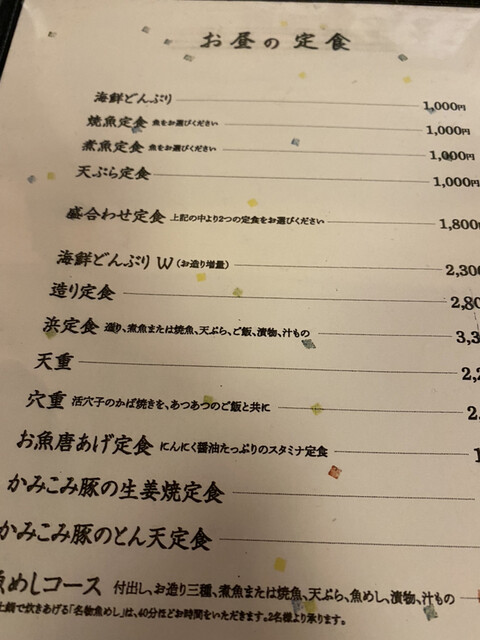 お昼の定食
海鮮どんぶり 1,000円
焼魚定食 魚をお選びください 1,000円
煮魚定食 魚をお選びください 1,000円
天ぷら定食 1,000円
盛合わせ定食 上記の中より2つの定食をお選びください 1,800円
海鮮どんぶりW(お造り増量) 2,300
造り定食 2,80
浜定食 造り、煮魚または焼魚、天ぷら、ご飯、漬物、汁もの 3,3
天重 2,2
穴重 活穴子のかば焼きを、あつあつのご飯と共に 2,
お魚唐あげ定食 にんにく醤油たっぷりのスタミナ定食 1
かみこみ豚の生姜焼定食
かみこみ豚のとん天定食
魚めしコース 付出し、お造り三種、煮魚または焼魚、天ぷら、魚めし、漬物、汁もの
土鍋で炊きあげる「名物魚めし」は、40分ほどお時間をいただきます。2名様より承ります。